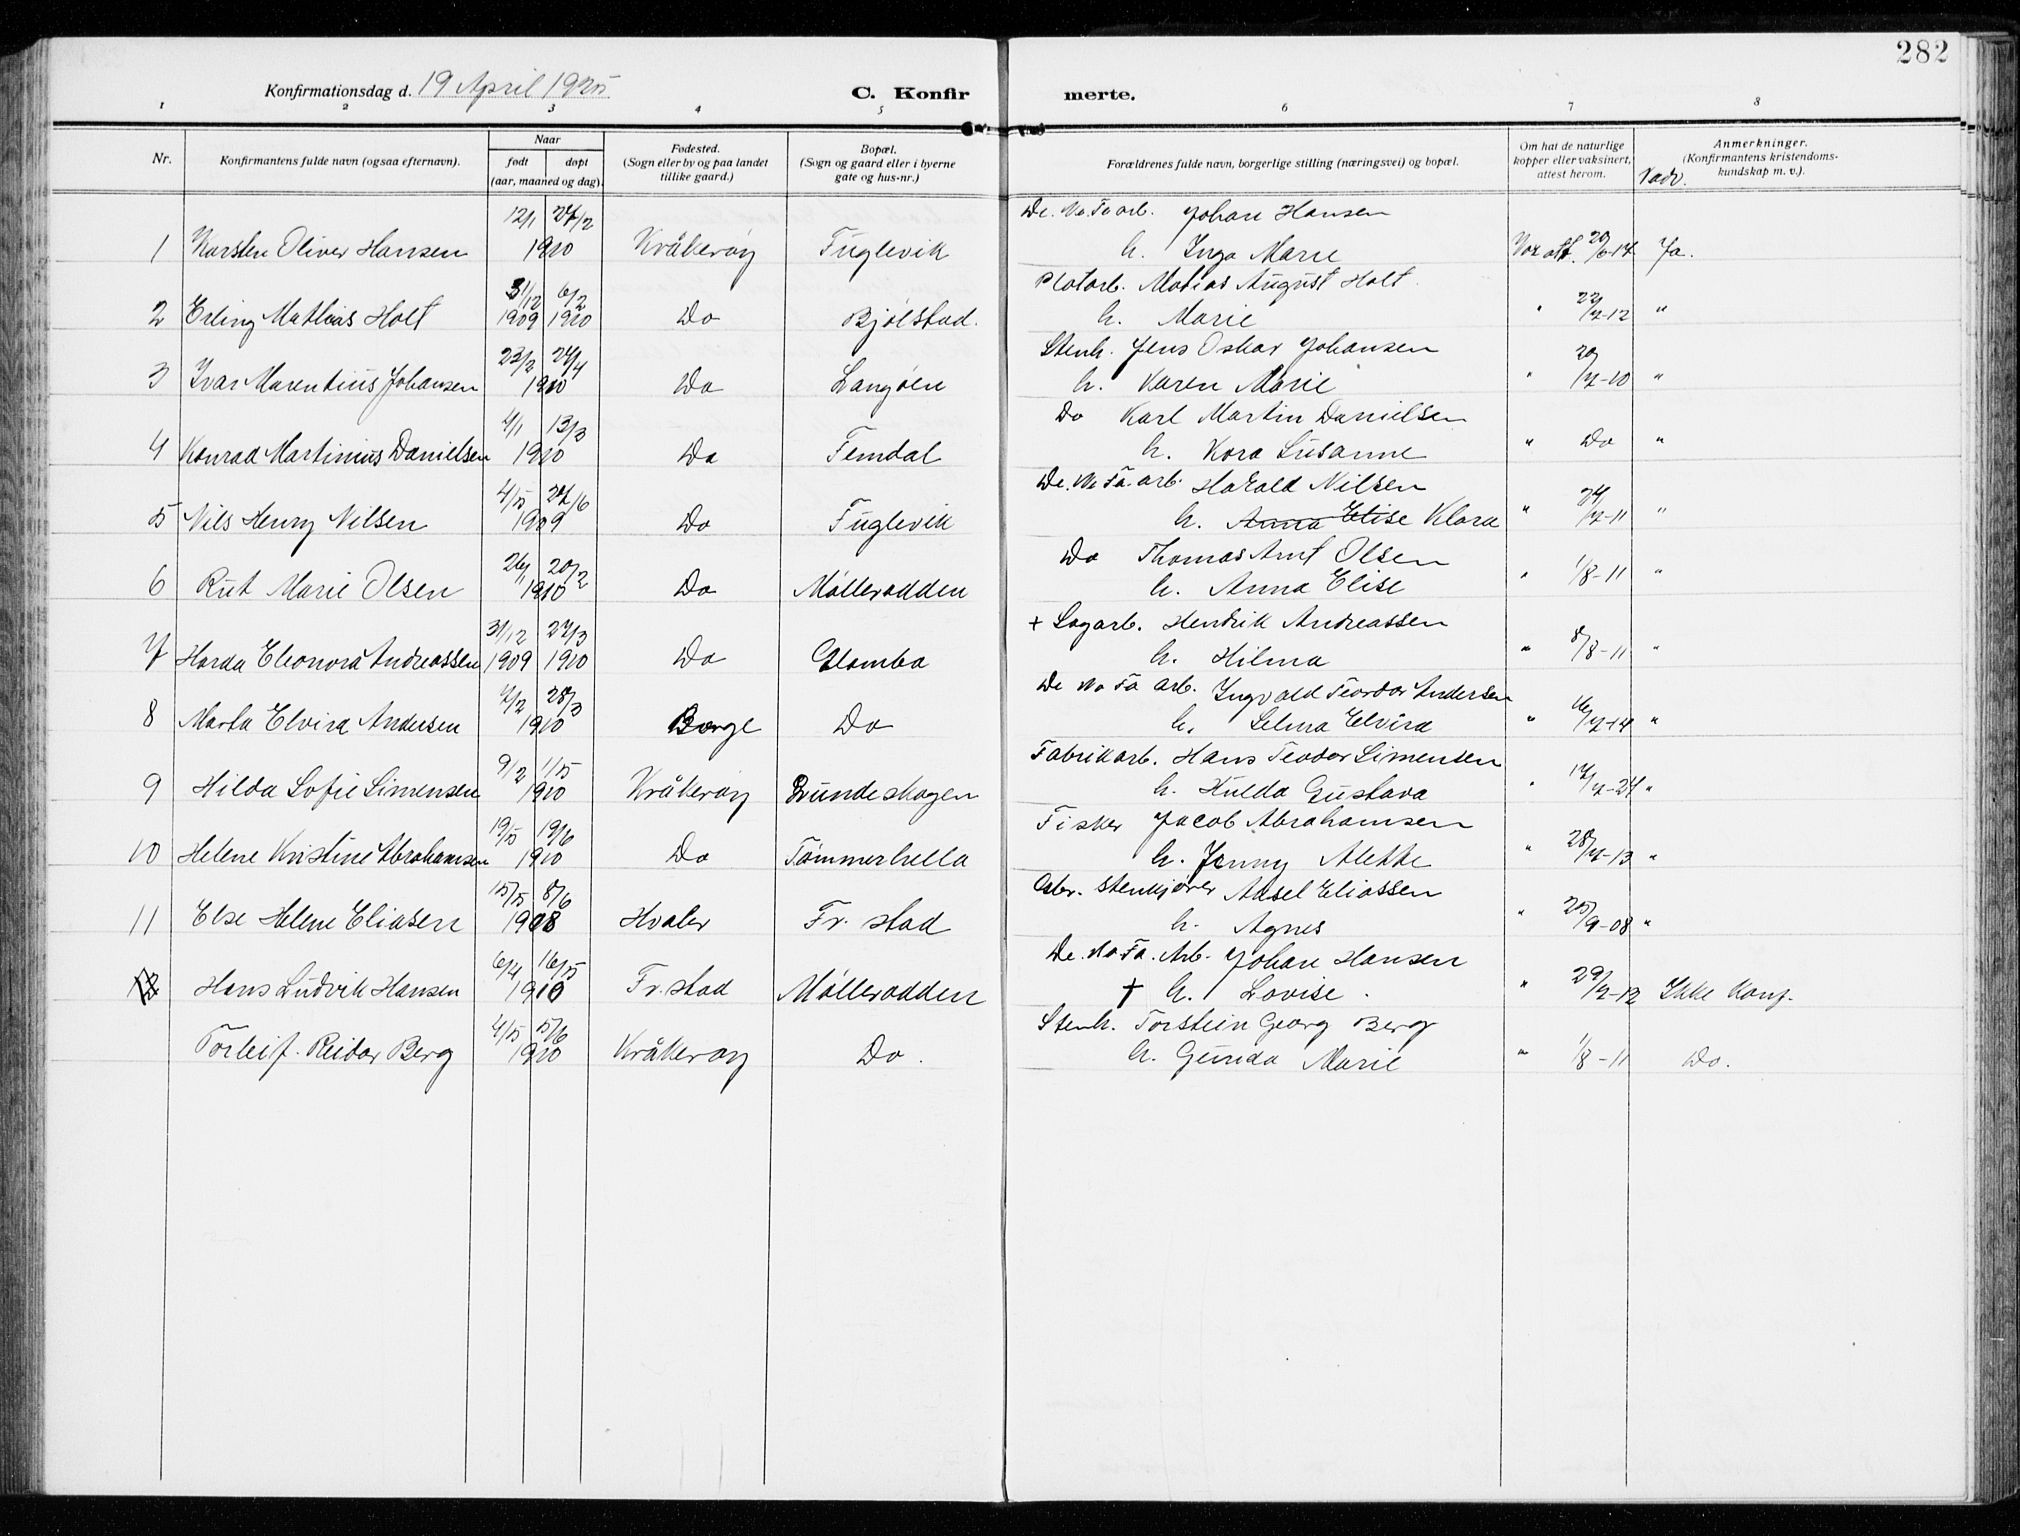 282
Konfirmationsdag d. 19 April 1925
C. Konfir
merte.
1 2 3 4 5 6 7 8
Nr.
Konfirmantens fulde navn (ogsaa efternavn).
Naar
født døpt
(aar, maaned og dag).
Fødested.
(Sogn eller by og paa landet
tillike gaard.)
Bopæl.
(Sogn og gaard eller i byerne
gate og hus-nr.)
Forældrenes fulde navn, borgerlige stilling (næringsvei) og bopæl.
Om hat de naturlige
kopper eller vaksinert,
attest herom.
Anmerkninger.
(Konfirmantens kristendoms-
kundskap m. v.).
12/1 27/2 De. No. Fa arb. Johan Hansen
1 Karsten Oliver Hansen 1910 Kråkerøy Fuglevik h. Inga Marie Vax att. 20/6-14 Ja.
31/12 6/2 Platarb. Matias August Holt
2 Erling Mathias Holt 1909 1910 Do Bjølstad. h. Marie " 22/7-12 "
23/2 24/4 Stenh. Jens Oskar Johansen
3 Ivar Marentius Johansen 1910 Do Langøen h. Karen Marie " 20/7-10 "
4/1 13/3 Do Karl Martin Danielsen
4 Konrad Martinius Danielsen 1910 Do Femdal h. Kora Susanne " Do "
4/5 27/6 De. No Fa. arb. Harald Nilsen
5 Nils Henry Nilsen 1909 Do Fuglevik h. Anna Elise Klara " 24/7-11 "
26/1 20/2 Do Thomas Arnt Olsen
6 Rut Marie Olsen 1910 Do Møllerodden h. Anna Elise " 1/8-11 "
31/12 27/3 + Sagarb. Hendrik Andreassen
7 Harda Eleonora Andreassen 1909 1910 Do Glomba h. Hilma " 8/8-11 "
7/2 28/3 De No Fa arb. Ingvald Teordor Andersen
8 Marta Elvira Andersen 1910 Borge Do h. Selma Elvira " 16/7-14 "
9/2 1/5 Fabrikarb. Hans Teodor Simensen
9 Hilda Sofie Simensen 1910 Kråkerøy Bundeskogen h. Hulda Gustava " 17/7-24 "
19/5 19/6 Fisker Jacob Abrahamsen
10 Helene Kristine Abrahamsen 1910 Do Tømmerhella h. Jenny Alette " 28/7-13 "
15/5 8/6 stenkjører Aksel Eliassen
11 Else Helene Eliasen 1908 Hvaler Fr. stad h. Agnes " 25/9-08 "
6/4 16/5 De. No Fa. Arb. Johan Hansen
12 Hans Ludvik Hansen 1910 Fr. stad Møllerodden + h. Lovise. " 29/7-12 Ikke Konf.
4/5 5/6 Stenh. Torstein Georg Berg
Torleif. Reidar Berg 1910 Kråkerøy Do. h. Gunda Marie " 1/8-11 Do.